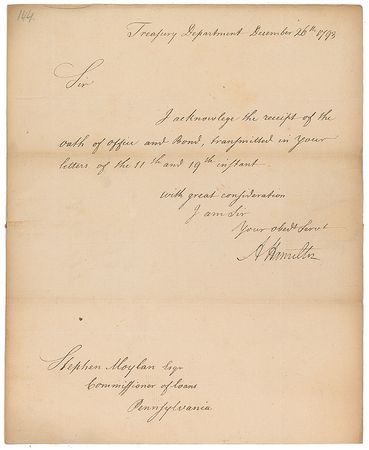 144.
Treasury Department December 26th 1793
Sir
I acknowlege the receipt of the
oath of office and Bond, transmitted in your
letters of the 11th and 19th instant
with great consideration
I am Sir
Your obedt Servt
A Hamilton
Stephen Moylan Esqr
Commissioner of loans
Pennsylvania